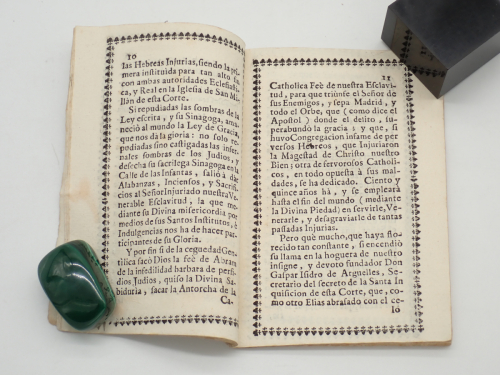 10
las Hebreas Injurias, siendo la pri-
mera instituida para tan alto fi
con ambas autoridades Eclesiasti-
ca, y Real en la Iglesia de San Mi-
llàn de esta Corte.
Si repudiadas las sombras de la
Ley escrita, y su Synagoga, ama-
neciò al mundo la Ley de Gracia,
que nos dà la gloria: no solo re-
pudiadas sino castigadas las infer-
nales sombras de los Judios, y
desecha su sacrilega Sinagoga en la
Calle de las Infantas, saliò todo
Alabanzas, Inciensos, y Sacrifi-
cios al Señor Injuriado nuestra Ve-
nerable Esclavitud, la que me-
diante su Divina misericordia por
medios de sus Santos Institutos, è
Indulgencias nos ha de hacer par-
ticipantes de su Gloria.
Y por fin si de la ceguedad Gen-
tilica sacò Dios la feè de Abram
de la infedilidad barbara de perfi-
dios Judios, quiso la Divina Sa-
biduria, sacar la Antorcha de la
Ca-
11
Catholica Feè de nuestra Esclavi-
tud, para que triùnfe el Señor de
sus Enemigos, y sepa Madrid, y
todo el Orbe, que (como dice el
Apostol) donde el delito, su-
perabundò la gracia; y que, si
huvo Congregacion infame de per
versos Hebreos, que Injuriaron
la Magestad de Christo nuestro
Bien; otra de fervorosos Catholi-
cos, en todo opuesta à sus mal-
dades, se ha dedicado. Ciento y
quince años hà, y se emplearà
hasta el fin del mundo (mediante
la Divina Piedad) en servirle, Ve-
nerarle, y desgraviarle de tantas
passadas Injurias.
Pero què mucho, que haya flo-
recido tan constante, si encendiò
su llama en la hoguera de nuestro
insigne, y devoto fundador Don
Gaspar Isidro de Arguelles, Se-
cretario del secreto de la Santa In
quisicion de esta Corte, que, co-
mo otro Elias abrasado con el ce-
lo